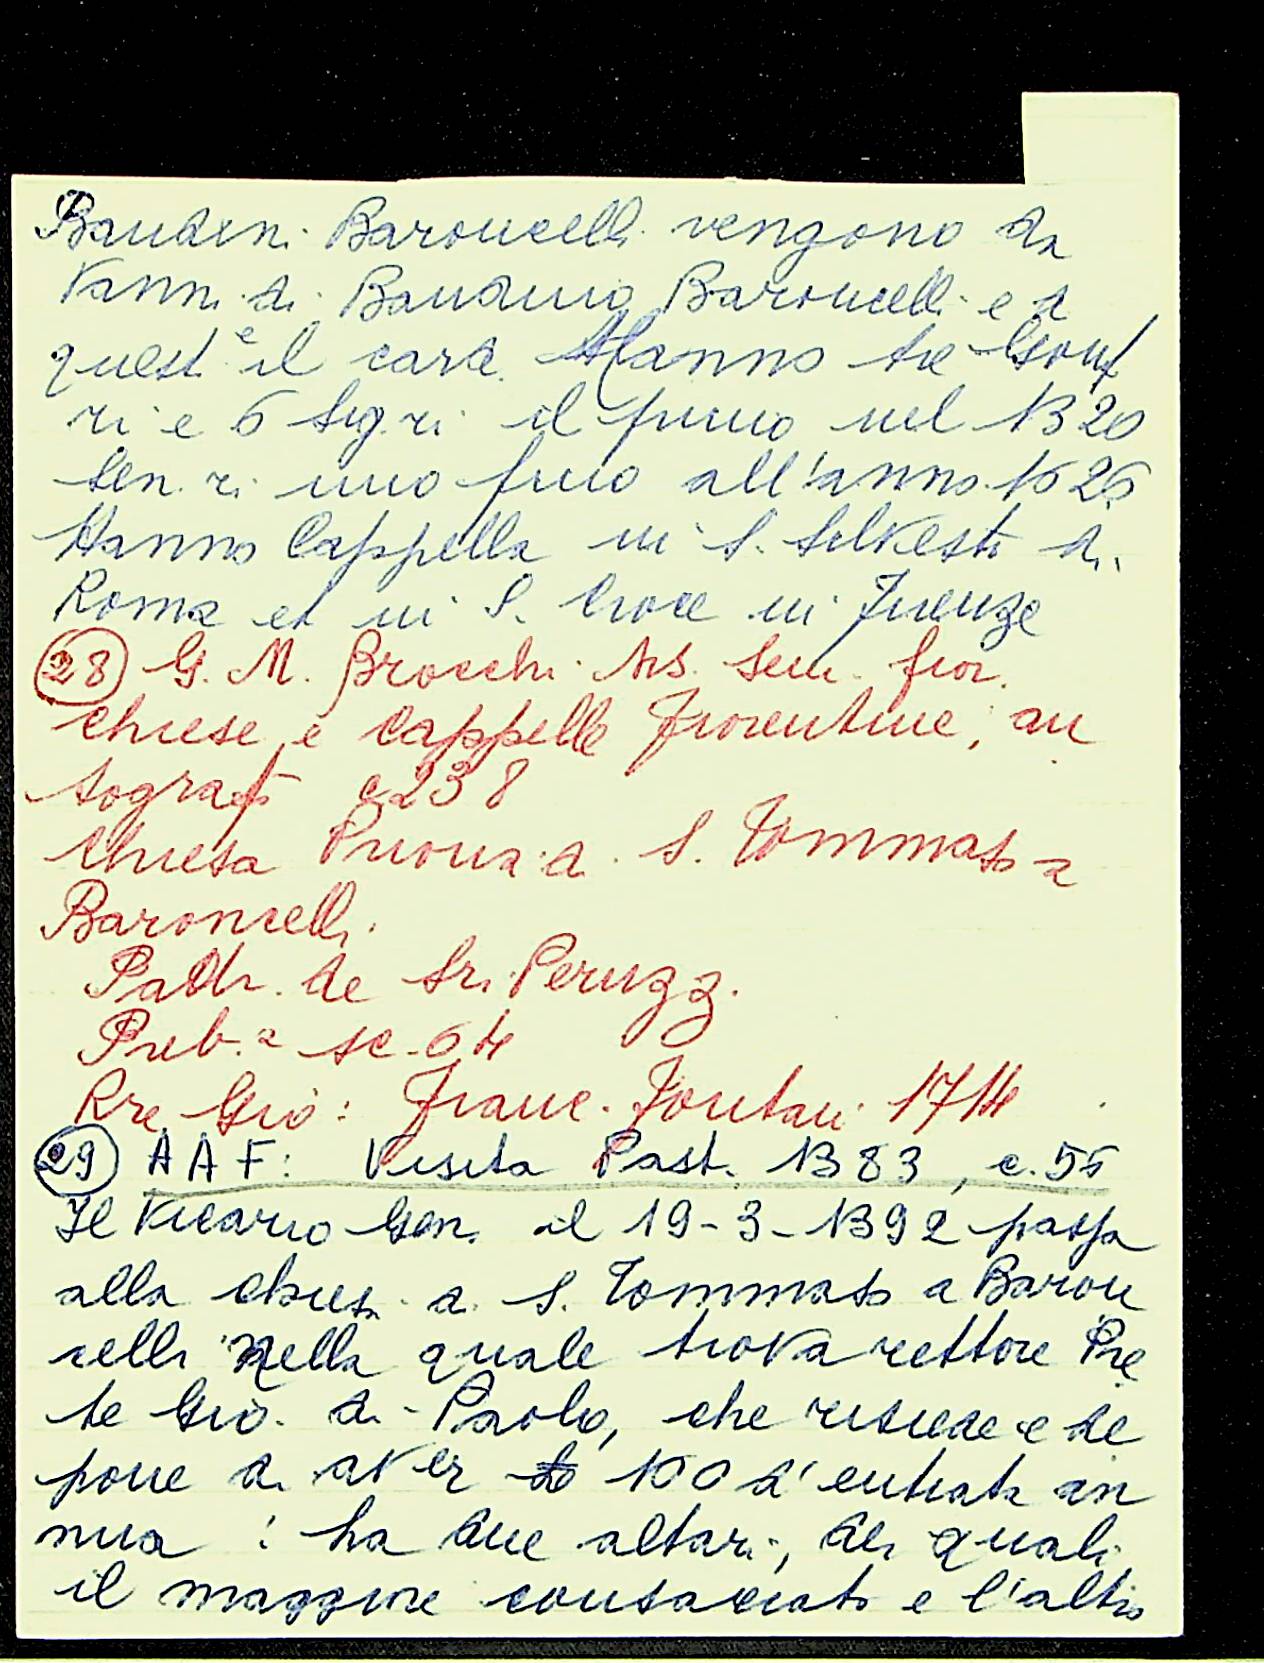 Bandini Baroncelli vengono da
Vanni di Bandino Baroncelli e a
questi è il card. Hanno
ri e 6 Sig.ri il primo nel 1320
Sen.ri uno fino all'anno 1626
Hanno Cappella in S. Silvestro di
Roma et in S. Croce in Firenze
28 G. M. Brocchi Ms. Sem. fior.
Chiese e Cappelle Fiorentine, au
tografo c 238
Chiesa Prioria di S. Tommaso a
Baroncelli.
Padr. de Sri Peruzzi.
Preb.a sc. 64
Rre Gio: Franc. Fontani 1714
29 AAF: Visita Past. 1383, c. 55
Il Vicario Gen. il 19-3-1392 passa
alla chiesa di S. Tommaso a Baron
celli nella quale trova rettore Pre
te Gio. di Paolo, che risiede e de
pone di aver 100 d'entrata an
nua: ha due altari, dei quali
il maggiore consacrato e l'altro